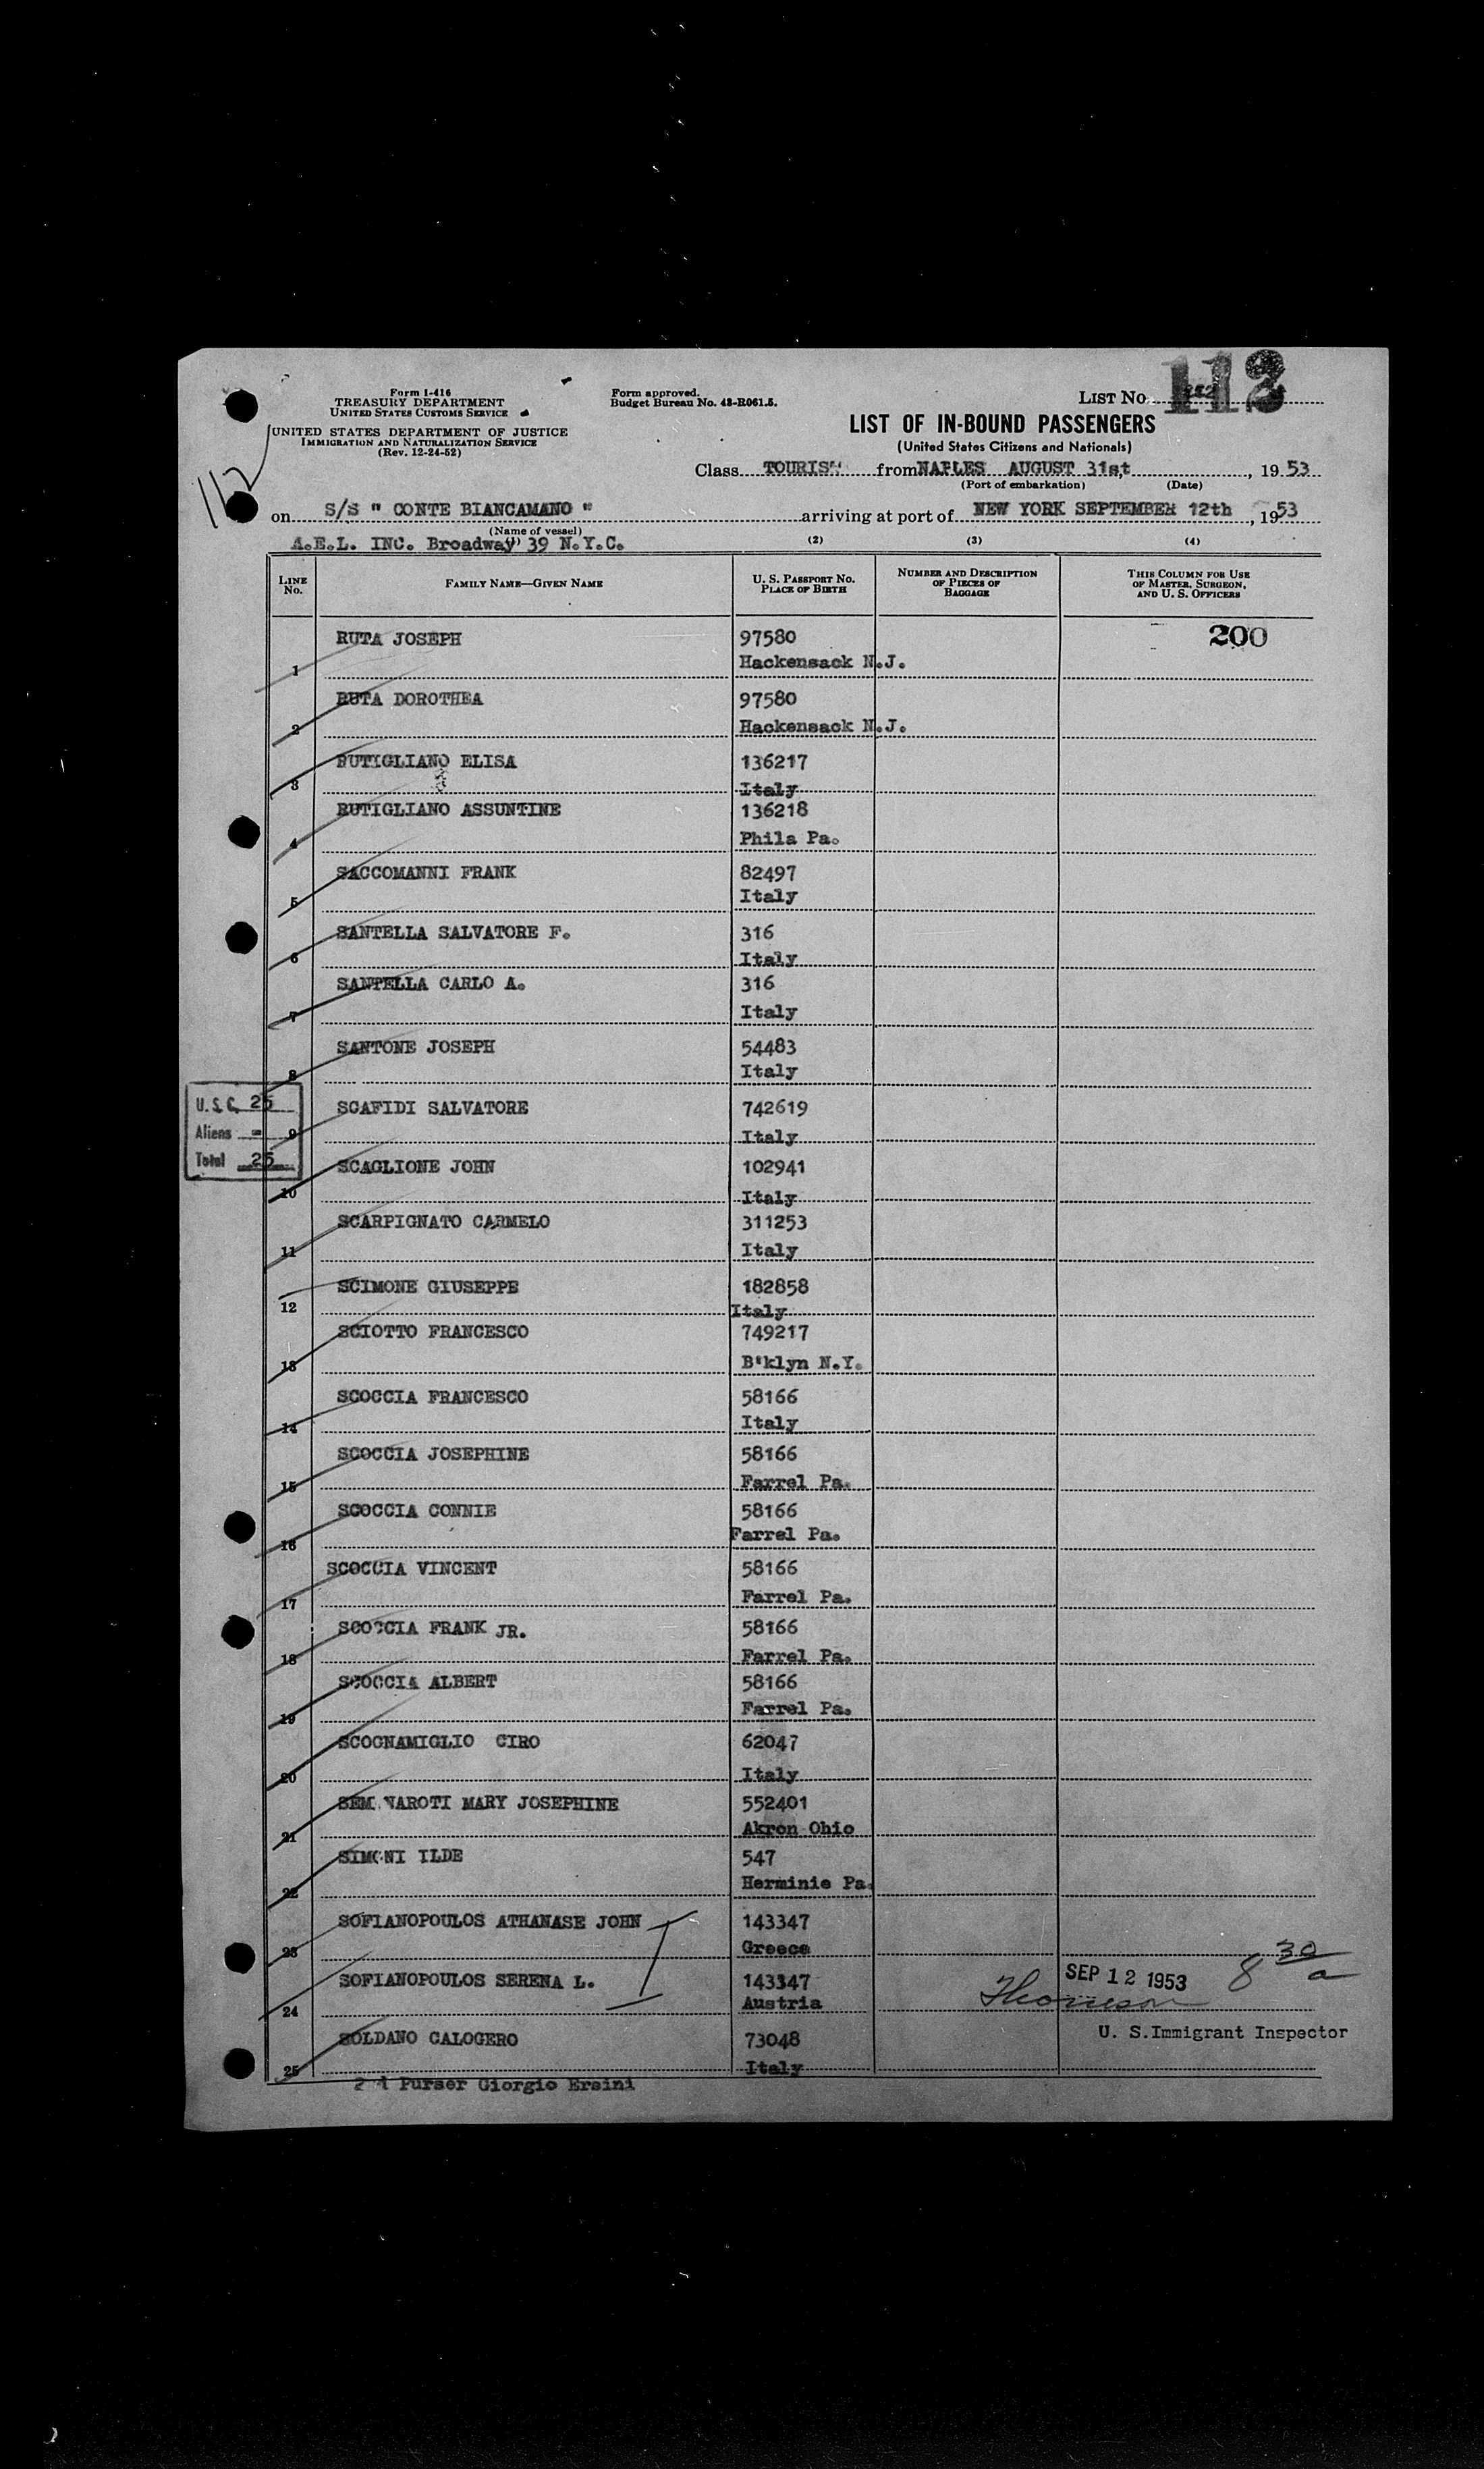 Form I-416
TREASURY DEPARTMENT
UNITED STATES CUSTOMS SERVICE
UNITED STATES DEPARTMENT OF JUSTICE
IMMIGRATION AND NATURALIZATION SERVICE
(Rev. 12-24-52)
Form approved.
Budget Bureau No. 43-R061.5.
LIST NO.
112
LIST OF IN-BOUND PASSENGERS
(United States Citizens and Nationals)
Class TOURIST from NAPLES AUGUST 31st, 1953
(Port of embarkation) (Date)
on S/S " CONTE BIANCAMANO " arriving at port of NEW YORK SEPTEMBER 12th, 1953
(Name of vessel)
A.E.L. INC. Broadway 39 N.Y.C.
(2) (3) (4)
LINE NO. FAMILY NAME—GIVEN NAME U. S. PASSPORT NO. PLACE OF BIRTH NUMBER AND DESCRIPTION OF PIECES OF BAGGAGE THIS COLUMN FOR USE OF MASTER, SURGEON, AND U. S. OFFICERS
RUTA JOSEPH 97580 200
1 Hackensack N.J.
RUTA DOROTHEA 97580
2 Hackensack N.J.
RUTIGLIANO ELISA 136217
3 Italy
RUTIGLIANO ASSUNTINE 136218
4 Phila Pa.
SACCOMANNI FRANK 82497
5 Italy
SANTELLA SALVATORE F. 316
6 Italy
SANTELLA CARLO A. 316
7 Italy
SANTONE JOSEPH 54483
8 Italy
U.S.C. 25
Aliens -
Total 25
SCAFIDI SALVATORE 742619
9 Italy
SCAGLIONE JOHN 102941
10 Italy
SCARPIGNATO CARMELO 311253
11 Italy
SCIMONE GIUSEPPE 182858
12 Italy
SCIOTTO FRANCESCO 749217
13 B'klyn N.Y.
SCOCCIA FRANCESCO 58166
14 Italy
SCOCCIA JOSEPHINE 58166
15 Farrel Pa.
SCOCCIA CONNIE 58166
16 Farrel Pa.
SCOCCIA VINCENT 58166
17 Farrel Pa.
SCOCCIA FRANK JR. 58166
18 Farrel Pa.
SCOCCIA ALBERT 58166
19 Farrel Pa.
SCOGNAMIGLIO CIRO 62047
20 Italy
MARY JOSEPHINE 552401
21 Akron Ohio
SIMONI ILDE 547
22 Herminie Pa.
SOFIANOPOULOS ATHANASE JOHN 143347
23 Greece
SOFIANOPOULOS SERENA L. 143347 SEP 12 1953 8 30 a
24 Austria
SOLDANO CALOGERO 73048 U. S. Immigrant Inspector
25 Italy
2nd Purser Giorgio Ersini